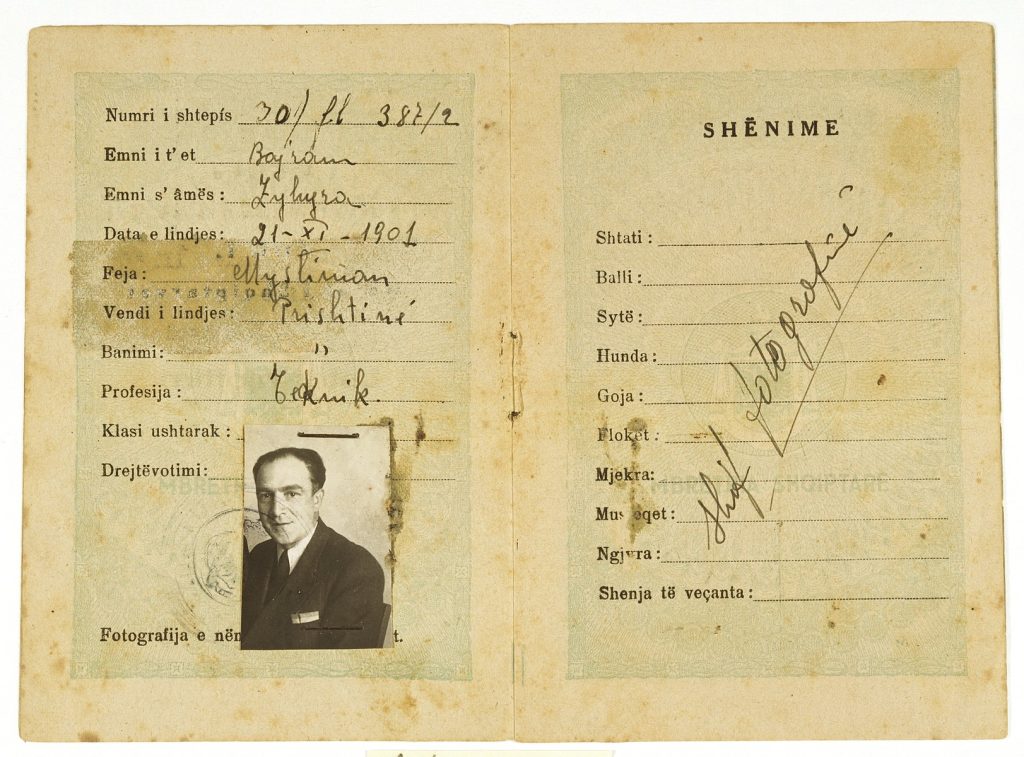 Numri i shtepís 30/ fl 387/2
Emni i t' et Bajram
Emni s' âmës: Zyhyra
Data e lindjes: 21-XI-1901
Feja: Mysliman
Vendi i lindjes: Prishtinë
Banimi: "
Profesija: Teknik.
Klasi ushtarak:
Drejtëvotimi:
Fotografija e nën t.
SHËNIME
Shtati:
Balli:
Sytë:
Hunda:
Goja:
Flokët:
Mjekra:
Mus eqet:
Ngjyra:
Shenja të veçanta:
Shif fotografinë